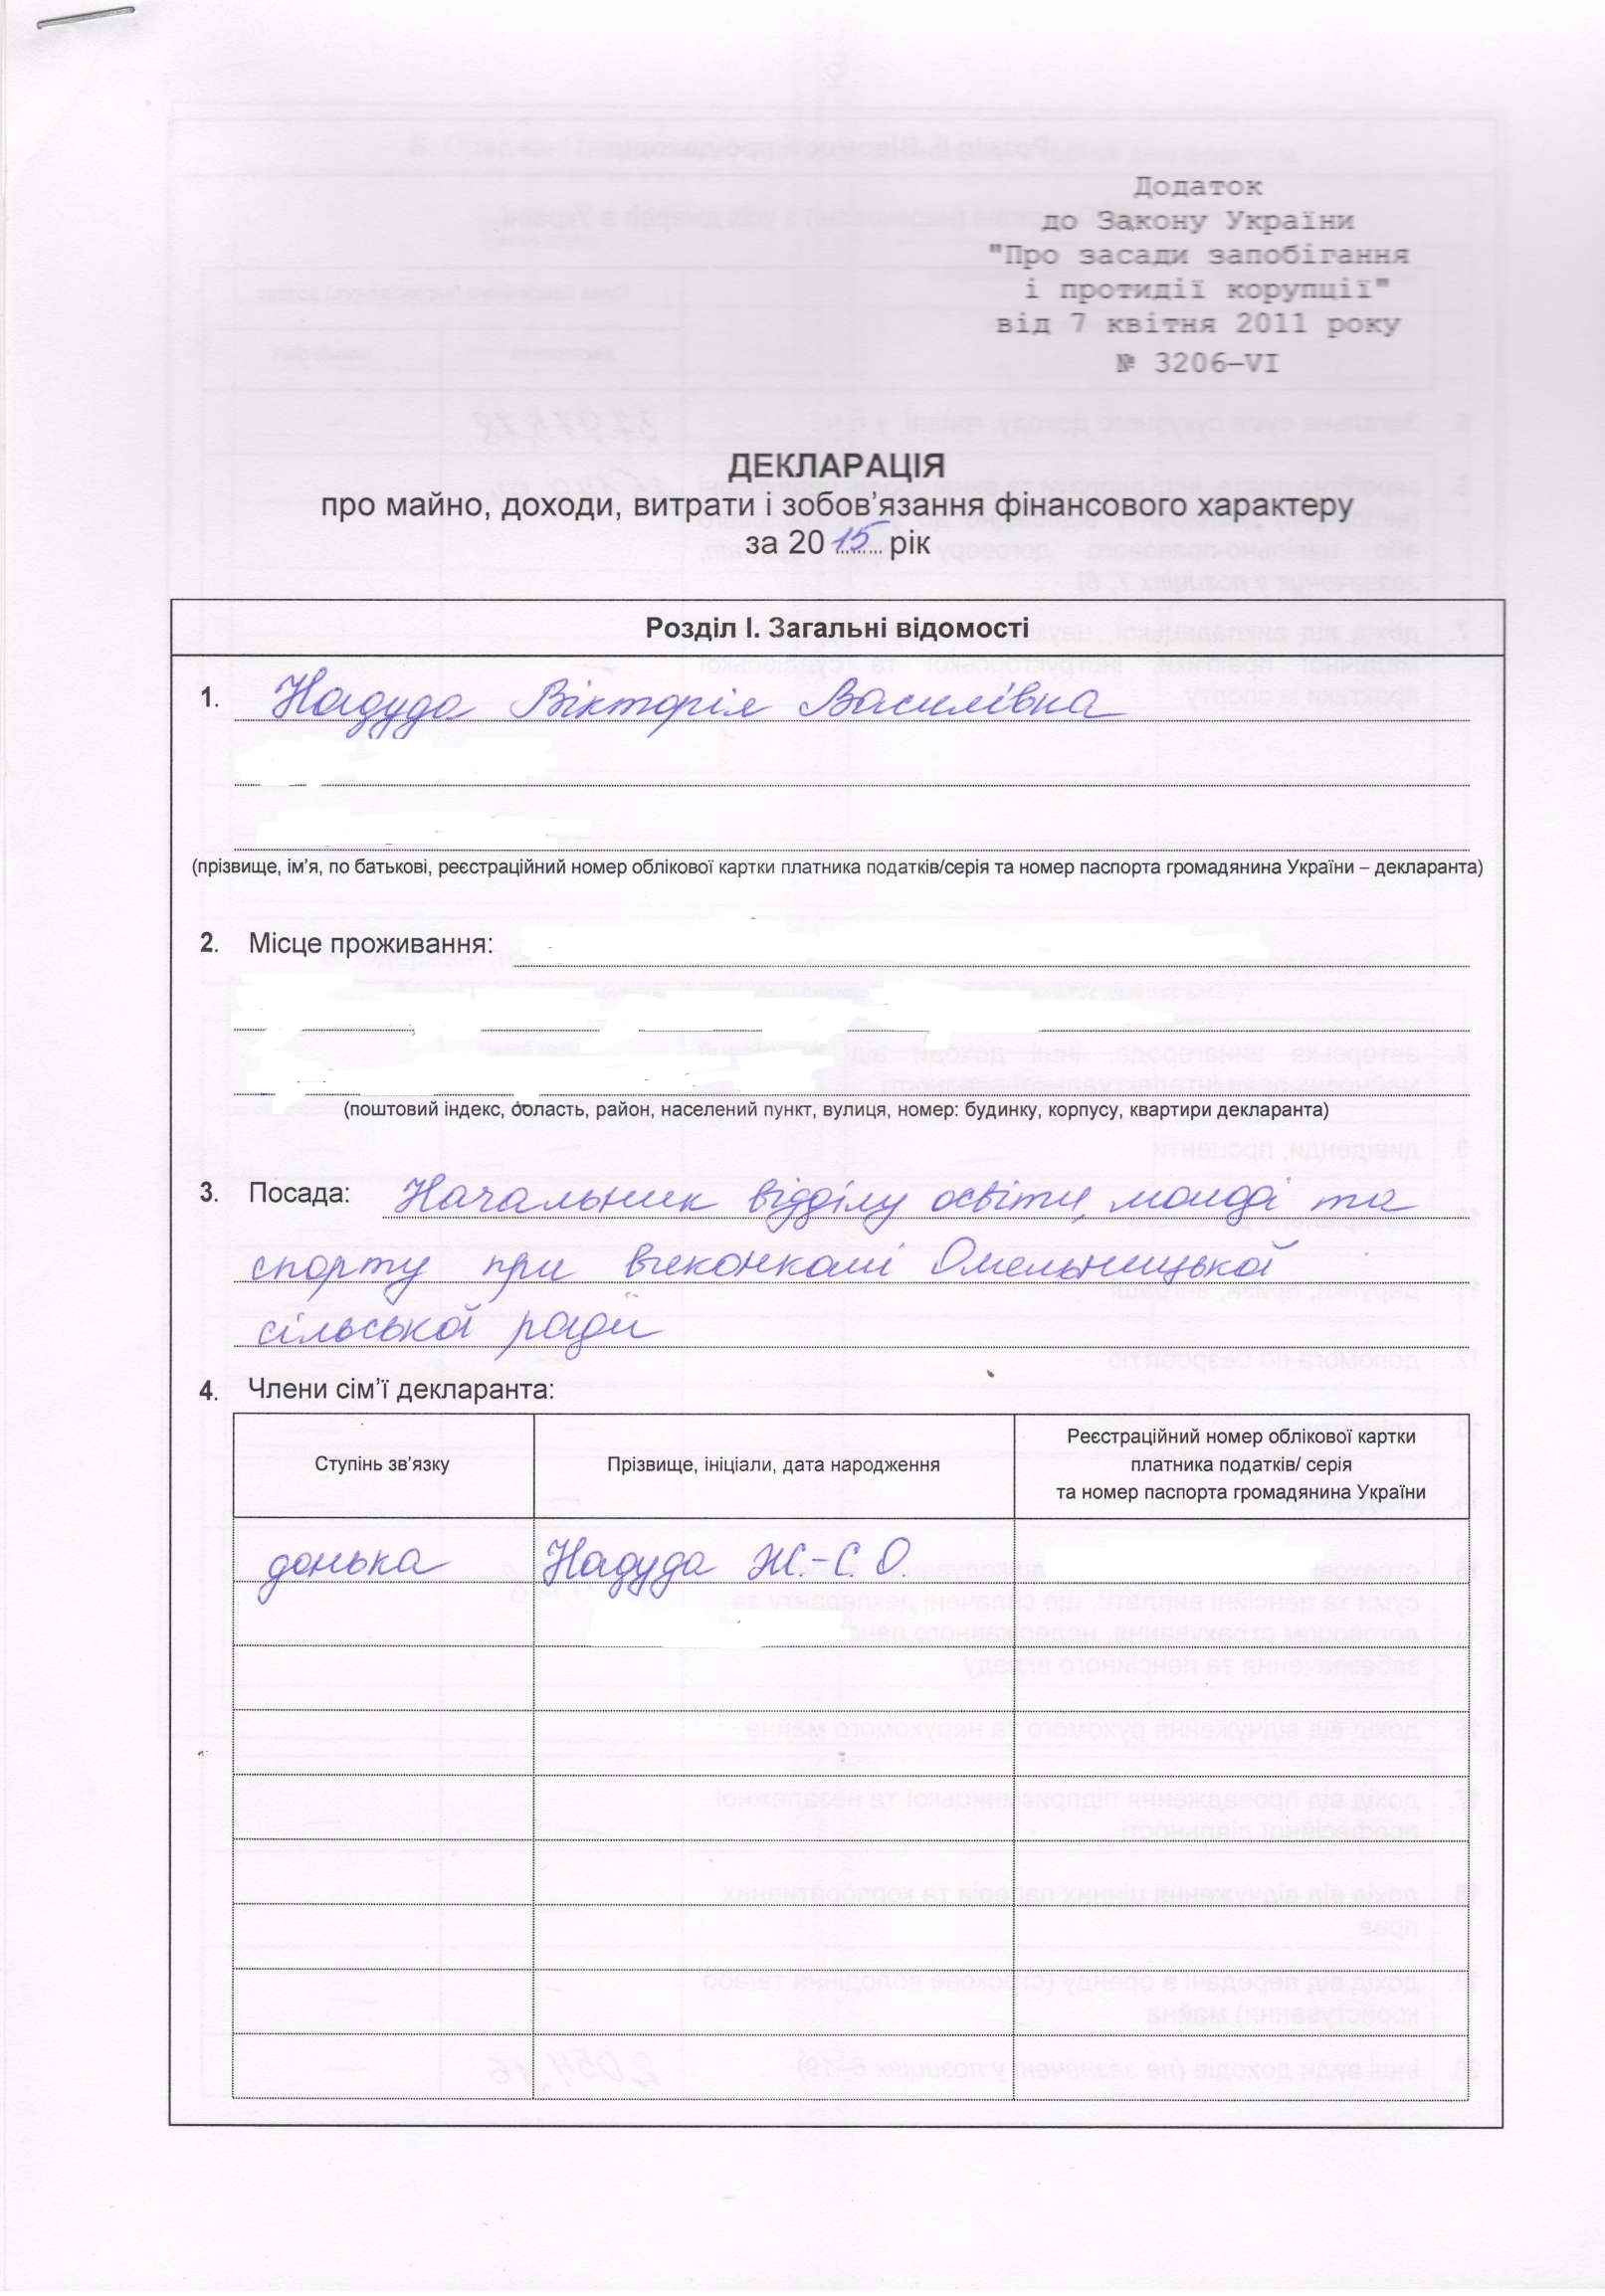 Додаток
до Закону України
"Про засади запобігання
і протидії корупції"
від 7 квітня 2011 року
№ 3206-VI
ДЕКЛАРАЦІЯ
про майно, доходи, витрати і зобов’язання фінансового характеру
за 2015 рік
Розділ I. Загальні відомості
1. Надуда Вікторія Василівна
(прізвище, ім’я, по батькові, реєстраційний номер облікової картки платника податків/серія та номер паспорта громадянина України – декларанта)
2. Місце проживання:
(поштовий індекс, область, район, населений пункт, вулиця, номер: будинку, корпусу, квартири декларанта)
3. Посада: Начальник відділу освіти, молоді та
спорту при виконкомі Омельницької
сільської ради
4. Члени сім’ї декларанта:
Ступінь зв’язку
Прізвище, ініціали, дата народження
Реєстраційний номер облікової картки
платника податків/ серія
та номер паспорта громадянина України
донька Надуда Ж.-С. О.